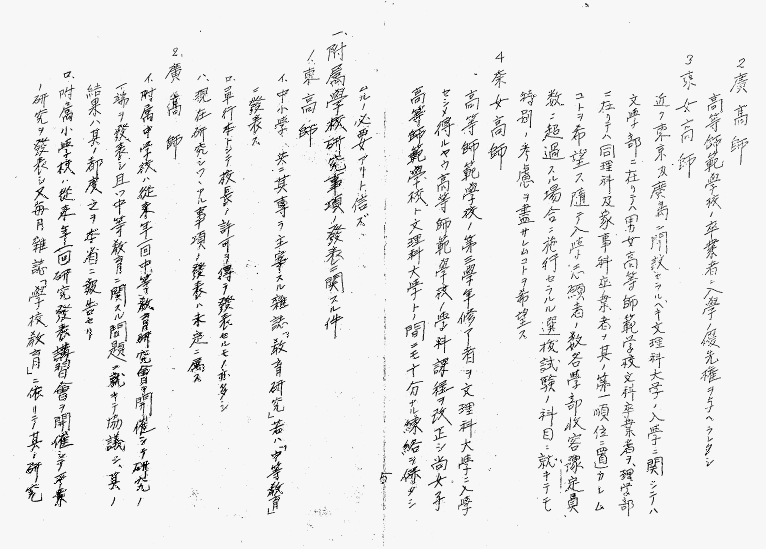 2 廣高師
高等師範學校ノ卒業者ニ入學ノ優先權ヲ與ヘラレタシ
3 東女高師
近ク東京及廣島ニ開設セラルベキ文理科大学ノ入學ニ関シテハ
文学部ニ在リテハ男女高等師範学校文科卒業者ヲ、理学部
ニ在リテハ同理科及家事科卒業者ヲ其ノ第一順位ニ置カレム
コトヲ希望ス随テ入学志願者ノ数各學部收容豫定員
数ニ超過スル場合ニ施行セラルル選抜試験ノ科目ニ就キテモ
特別ノ考慮ヲ盡サレムコトヲ希望ス
4 奈女高師
高等師範學校ノ第三學年修了者ヲ文理科大學ニ入學
セシメ得ルヤウ高等師範學校ノ學科課程ヲ改正シ尚女子
高等師範學校ト文理科大學トノ間ニモ十分ナル聯絡ヲ保タシ
5
ムルノ必要アリト信ズ
一、附属學校研究事項ノ發表ニ関スル件
1. 東高師
イ、中小学ハ共ニ其專ラ主宰スル雑誌「教育研究」若ハ「中等教育」
ニ發表ス
ロ、單行本トシテ校長ノ許可ヲ得テ發表セルモノ亦少カラズ
ハ、現在研究シツヽアル事項ノ發表ハ未定ニ属ス
2. 廣高師
イ、附属中学校ハ從来年一回中等教育研究會ヲ開催シテ研究ノ
一端ヲ發表シ且ツ中等教育ニ関スル問題ニ就キテ協議シ、其ノ
結果ハ其ノ都度之ヲ本省ニ報告セリ
ロ、附属小学校ハ從来年一回研究發表講習會ヲ開催シテ卒業
ノ研究ヲ發表シ又毎月雑誌「学校教育」ニ依リテ其ノ研究